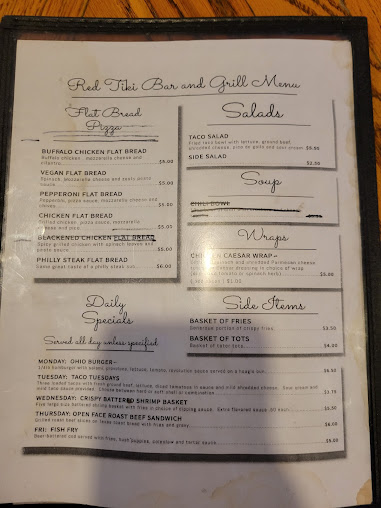 Red Tiki Bar and Grill Menu
Flat Bread
Pizza
BUFFALO CHICKEN FLAT BREAD
Buffalo chicken, mozzarella cheese and
cilantro $5.00
VEGAN FLAT BREAD
Spinach, mozzarella cheese and pesto
sauce $5.00
PEPPERONI FLAT BREAD
Pepperoni, pizza sauce, mozzarella cheese and
$5.00
CHICKEN FLAT BREAD
Grilled chicken, pizza sauce, mozzarella
cheese $5.00
BLACKENED CHICKEN FLAT BREAD
Spicy grilled chicken with spinach leaves and
pesto sauce $5.00
PHILLY STEAK FLAT BREAD
Same great taste of a philly steak sub $6.00
Salads
TACO SALAD
Fried taco bowl with lettuce, ground beef,
shredded cheese, pico de gallo and sour cream $5.50
SIDE SALAD
$2.50
Soup
CHILI BOWL
Wraps
CHICKEN CAESAR WRAP~
and shredded Parmesan cheese
Caesar dressing in choice of wrap
tomato or spinach herb) $5.00
$1.00
Side Items
BASKET OF FRIES
Generous portion of crispy fries $3.50
BASKET OF TOTS
Basket of tater tots $4.00
Daily
Specials
Served all day unless specified
MONDAY: OHIO BURGER~
1/4lb hamburger with onions, provolone, lettuce, tomato, sauce served on a hoagie bun $6.50
TUESDAY: TACO TUESDAYS
Three loaded tacos with fresh ground beef, lettuce, diced tomatoes and shredded cheese. Sour cream and
mild taco sauce provided. Choose between hard or soft shell or combination $1.75
WEDNESDAY: CRISPY BATTERED SHRIMP BASKET
Five large size battered shrimp basket with fries in choice of dipping sauce. Extra flavored sauce .50 each $5.50
THURSDAY: OPEN FACE ROAST BEEF SANDWICH
Sliced roast beef slices on Texas toast bread with fries and gravy $6.00
FRI: FISH FRY
Beer battered and served with fries, hush puppies, coleslaw and tartar sauce $8.00